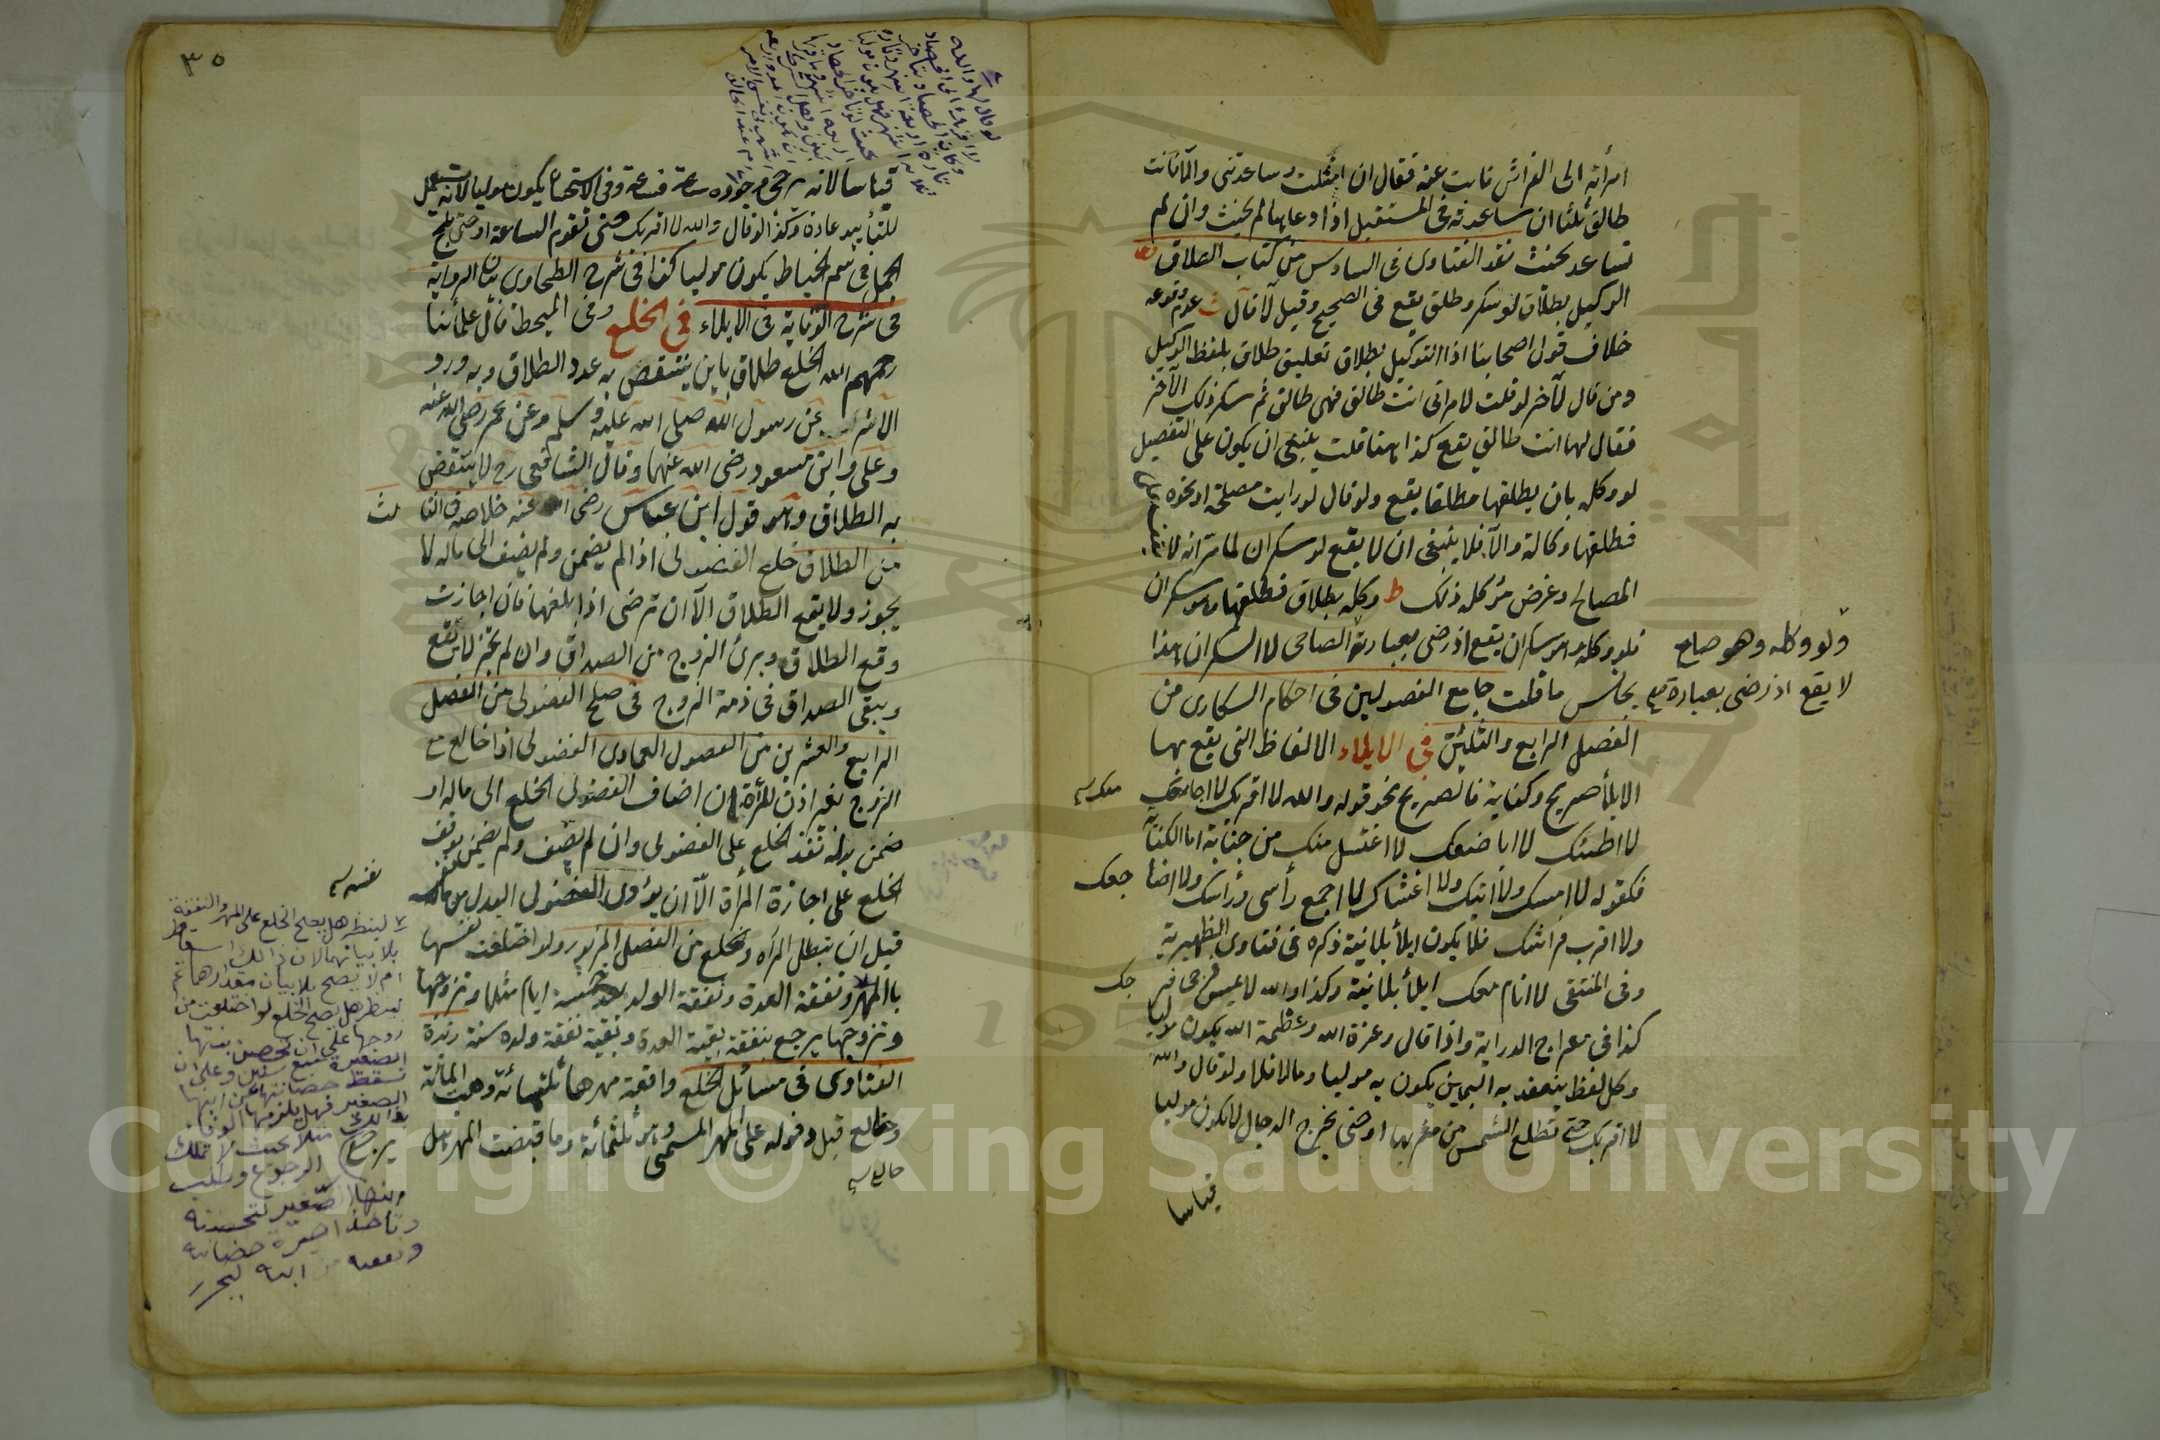 امرأته الى الفراش فابت عنه فقال ان امتثلت وساعدتني والا فانت
طالق ثلثا ان ساعدته في المستقبل اذا دعاها لم يحنث وان لم
تساعد يحنث نقد الفتاوى في السادس من كتاب الطلاق
الوكيل بطلاق لو سكر وطلق يقع في الصحيح وقيل لا قال عدم وقوعه
خلاف قول اصحابنا اذا التوكيل بطلاق تعليق طلاق بلفظ الوكيل
ومن قال لآخر لو قلت لامراتى انت طالق فهى طالق ثم سكر ذلك الآخر
فقال لها انت طالق يقع كذا هذا قلت ينبغى ان يكون على التفصيل
لو وكله بان يطلقها مطلقا يقع ولو قال لو رايت مصلحة او نحوه
فطلقها وكالة والا فلا ينبغى ان لا يقع لو سكران لما مر انه لا
المصالح وغرض مؤكله ذلك ط وكله بطلاق فطلقها وهو سكران
فلو وكله وهو سكران يقع اذ رضى بعبارة الصاحى لا السكران هذا
ولو وكله وهو صاح
لا يقع اذ رضى بعبارة
يجانس ما قلت جامع الفصولين في احكام السكارى من
الفصل الرابع والثلثين في الايلاء الالفاظ التي يقع بها
الايلأ صريح وكناية فالصريح نحو قوله والله لا اقربك لا اجامعك
لا اطئك لا اباضعك لا اغتسل منك من جنابة اما الكناية
فكقوله لا امسك ولا اتيك ولا اغشاك لا اجمع رأسى ورأسك ولا اضا
جعك
ولا اقرب فراشك فلا يكون ايلأ بلا نية ذكره في فتاوى الظهيرية
وفى المنتقى لا انام معك ايلأ بلا نية وكذا والله لا يمس فرجى فر
جك
كذا في معراج الدراية واذا قال وعزة الله وعظمة الله يكون موليا
وكل لفظ ينعقد به اليمين يكون به موليا ومالا فلا ولو قال والله
لا اقربك حتى تطلع الشمس من مغربها او حتى يخرج الدجال لا يكون موليا
قياسا
٣٥
لو قال لها والله
لا اقربك الى الحصاد
قياسا لانه يرجى وجوده ساعة فساعة وفى الاستحسان يكون موليا لانه يستعمل
للتأبيد عادة وكذا لو قال والله لا اقربك حتى تقوم الساعة او حتى يلج
الجمل في سم الخياط يكون موليا كذا في شرح الطحاوى
في شرح الوقاية في الايلاء في الخلع وفى المحيط قال علمائنا
رحمهم الله الخلع طلاق باين ينتقض به عدد الطلاق وبه ورد
الاثر عن رسول الله صلى الله عليه وسلم وعن عمر رضى الله عنه
وعلى وابن مسعود رضى الله عنهما وقال الشافعى رح لا ينتقض
به الطلاق وهو قول ابن عباس رضى الله عنه خلاصة في الثا
لث
من الطلاق خلع الفضولى اذا لم يضمن ولم يضف الى ماله لا
يجوز ولا يقع الطلاق الا ان ترضى اذا بلغها فان اجازت
وقع الطلاق وبرئ الزوج من الصداق وان لم تجز لا يقع
ويبقى الصداق في ذمة الزوج في صلح الفضولى من الفصل
الرابع والعشرين من الفصول العمادى الفضولى اذا خالع مع
الزوج بغير اذن المرأة ان اضاف الفضولى الخلع الى ماله او
ضمن بدله نفذ الخلع على الفضولى وان لم يضف ولم يضمن يوقف
الخلع على اجازة المرأة الا ان يؤدى الفضولى البدل من مال
نفسه
قبل ان يبطل المرأه ونخلع من الفصل المزبور ولو اختلعت نفسها
بالمهر ونفقة العدة ونفقة الولد بعد خمسة ايام مثلا
وتزوجها يرجع بنفقة بقية العدة وبقية نفقة ولده سنة زبدة
الفتاوى في مسائل الخلع واقعة مهرها ثلثمائة وهبت المائة
وخالع قبل دخوله على المهر المسمى وهو ثلثمائة وما قبضت المهر هل
لينظر هل يصح الخلع على المهر والنفقة
بلا بيانهما لان ذلك اسقاط
ام لا يصح بلا بيان مقدارهما ثم
لينظر هل يصح الخلع لو اختلعت من
زوجها على ان تحضن بنتها
الصغيرة سبع سنين وعلى ان
تسقط حضانتها عن ابنها
الصغير فهل يلزمها الوفاء
بذلك
الرجوع
وتأخذ اجرة حضانته
ونفقته من ابيه ليحرر